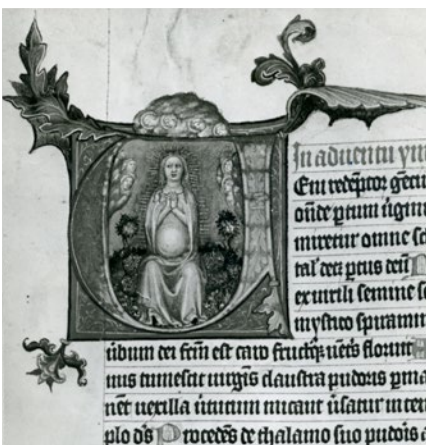 In aduentu ym
Eni redẽptor gẽciu
õnde ꝑtum ũgini
miretur omne sc
tal' decz ꝑtus deũ N
ex uirili semine s
mystico spiramin
ũbum dei fc̃m est caro fructq̃ uẽtis floruit
uus tumescit uirgis claustra pudoris ꝑma
net uexilla ũtutum micant ũsatur in tem
plo dõs Procedẽs de thalamo suo pudois a